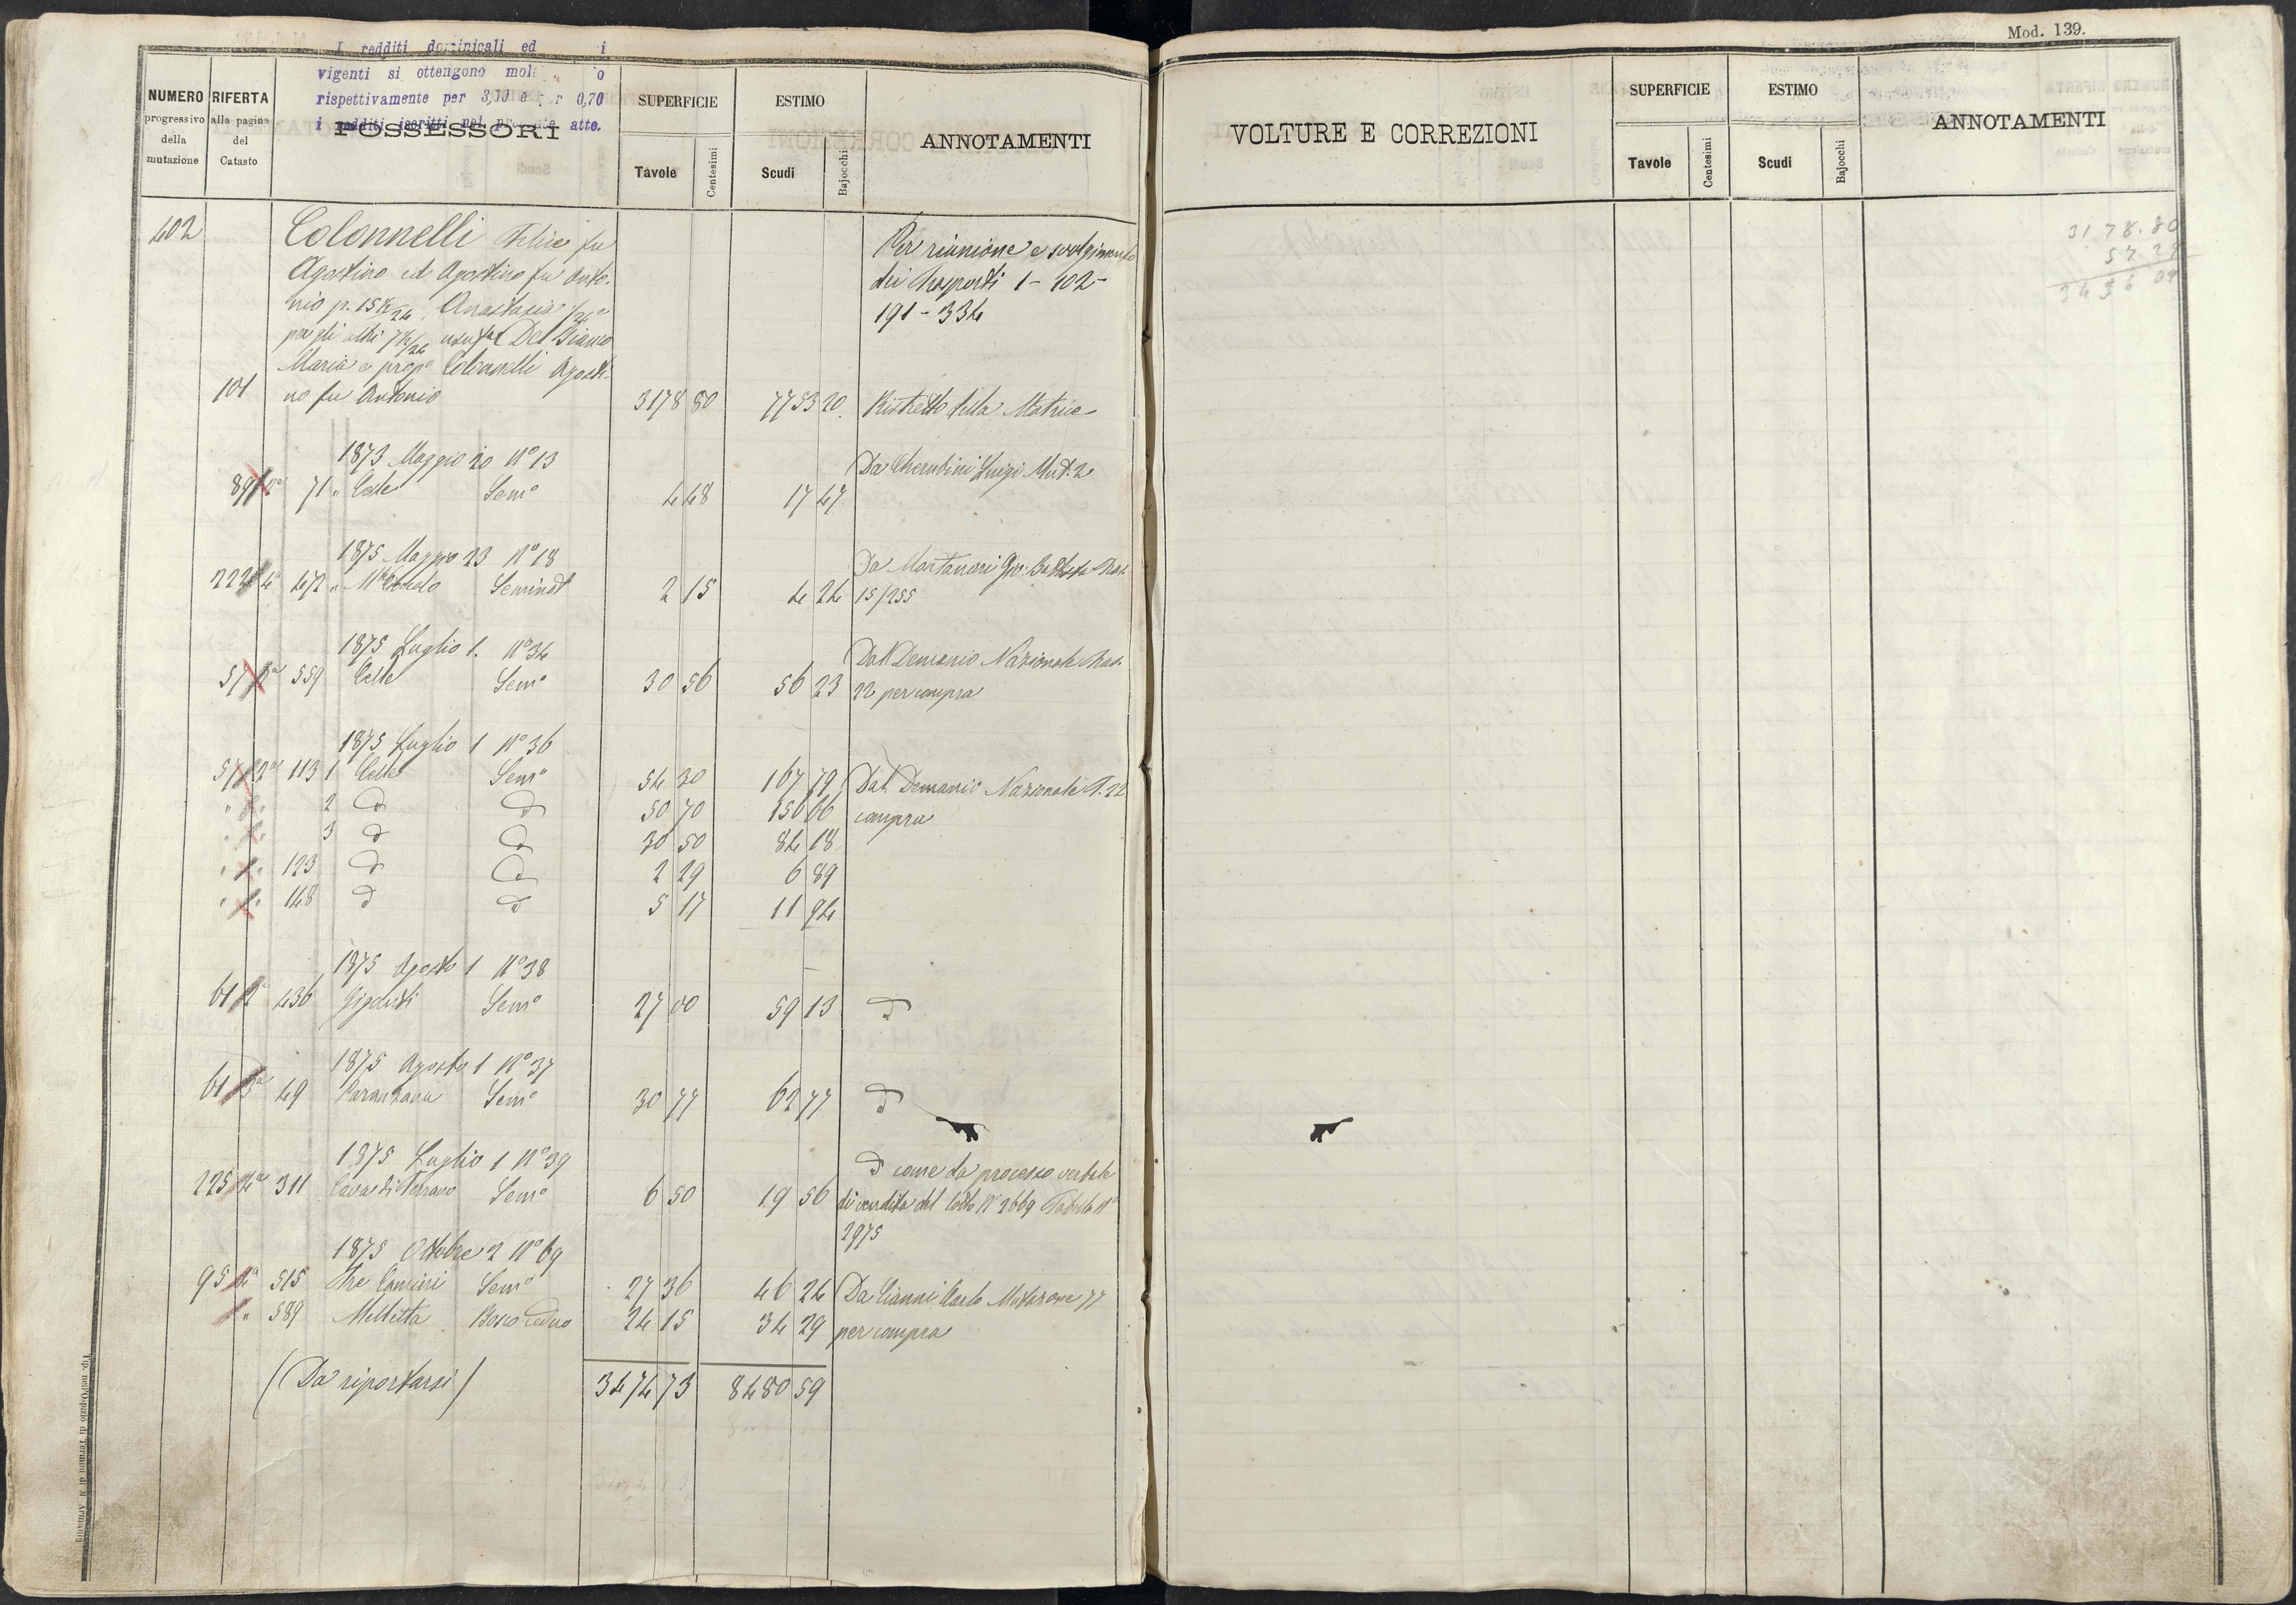 Mod. 139.
I redditi dominicali ed i
vigenti si ottengono mol o
rispettivamente per 3,30 e per 0,70
i redditi iscritti nel presente atto.
NUMERO progressivo della mutazione
RIFERTA alla pagina del Catasto
POSSESSORI
SUPERFICIE
Tavole Centesimi
ESTIMO
Scudi Bajocchi
ANNOTAMENTI
402 Colonnelli Felice fu Per riunione e svolgimento
Agostino ed Agostino fu Anto- dei trasporti 1 - 402 -
nio p. 15 Anastasia 191 - 334
per gli altri usuf Del Bianco
Maria e prop Colonnelli Agosti-
101 no fu Antonio 3178 80 7753 20 Ristretto della Matrice
1873 Maggio 20 Nº 13 Da Cherubini Luigi Mut. 2
89 71 Celle Semº 4 48 17 47
1875 Maggio 23 Nº 18 Da Montanari Gio: Battista
222 472 Seminat 2 15 4 24 15/255
1875 Luglio 1. Nº 34 Dal Demanio Nazionale
57 559 Celle Semº 30 56 56 23 22 per compra
1875 Luglio 1 Nº 36
57 2 113 1 Celle Semº 54 30 167 79 Dal Demanio Nazionale
" " 2 d d 50 70 156 66 compra
" " 3 d d 30 50 84 18
" " 123 d d 2 29 6 89
" " 148 d d 5 17 11 94
1875 Agosto 1 Nº 38
61 2 436 Semº 27 00 59 13 d
1875 Agosto 1 Nº 37
61 49 Semº 30 77 62 77 d
1875 Luglio 1 Nº 39 d come da processo verbale
225 311 Cava di Semº 6 50 19 56 di vendita del lotto Nº 2669 Tabella Nº
2975
1875 Ottobre 2 Nº 69
95 515 Tre Camini Semº 27 36 46 24 Da Cianni Carlo Mutazione 77
" 589 Melletta Bosco ceduo 24 15 34 29 per compra
(Da riportarsi) 3474 73 8480 59
VOLTURE E CORREZIONI
SUPERFICIE
Tavole Centesimi
ESTIMO
Scudi Bajocchi
ANNOTAMENTI
3178.80
57 29